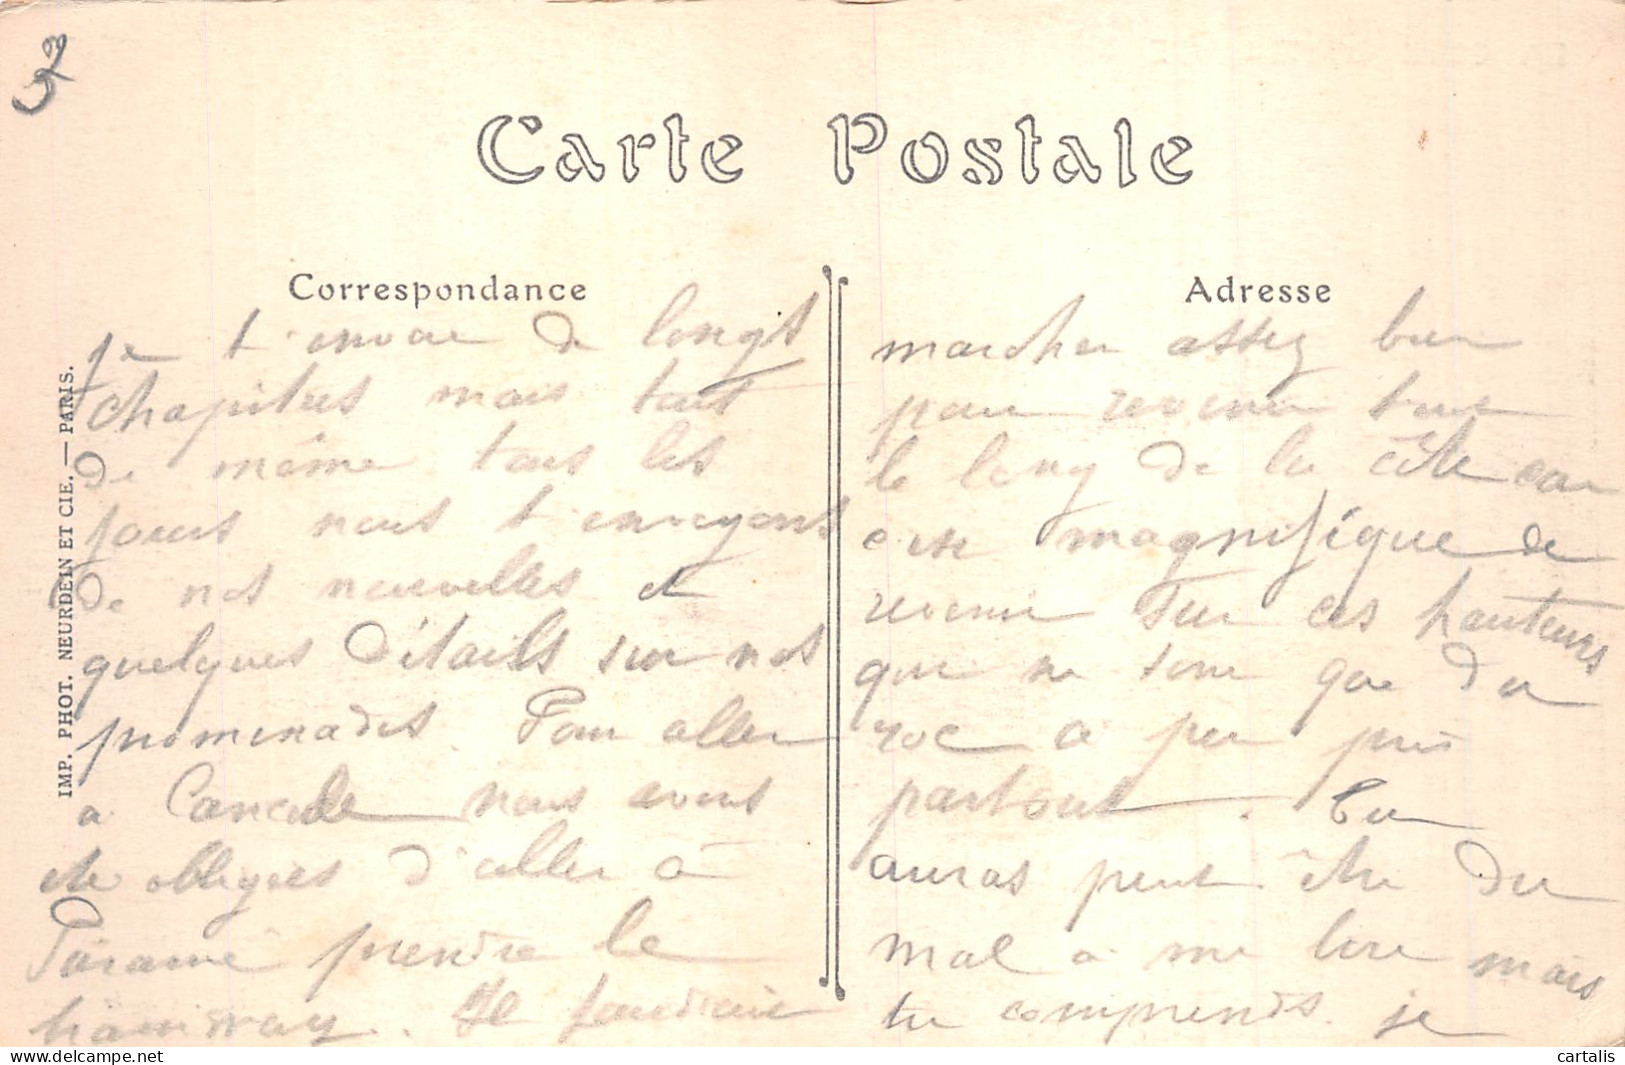 Carte Postale
Correspondance
je t'envoie de longs
chapitres mais tout
de même tous les
jours nous t'envoyons
de nos nouvelles et
quelques détails sur nos
promenades. Pour aller
a Cancale nous avons
été obligées d'aller à
Paramé prendre le
tramway. Il faudrait
Adresse
marcher assez bien
pour revenir tout
le long de la côte car
c'est magnifique de
revenir sur ces hauteurs
que ne sont que du
roc à peu près
partout. Tu
auras peut être du
mal a me lire mais
tu comprends je
IMP. PHOT. NEURDEIN ET CIE. — PARIS.
cartalis